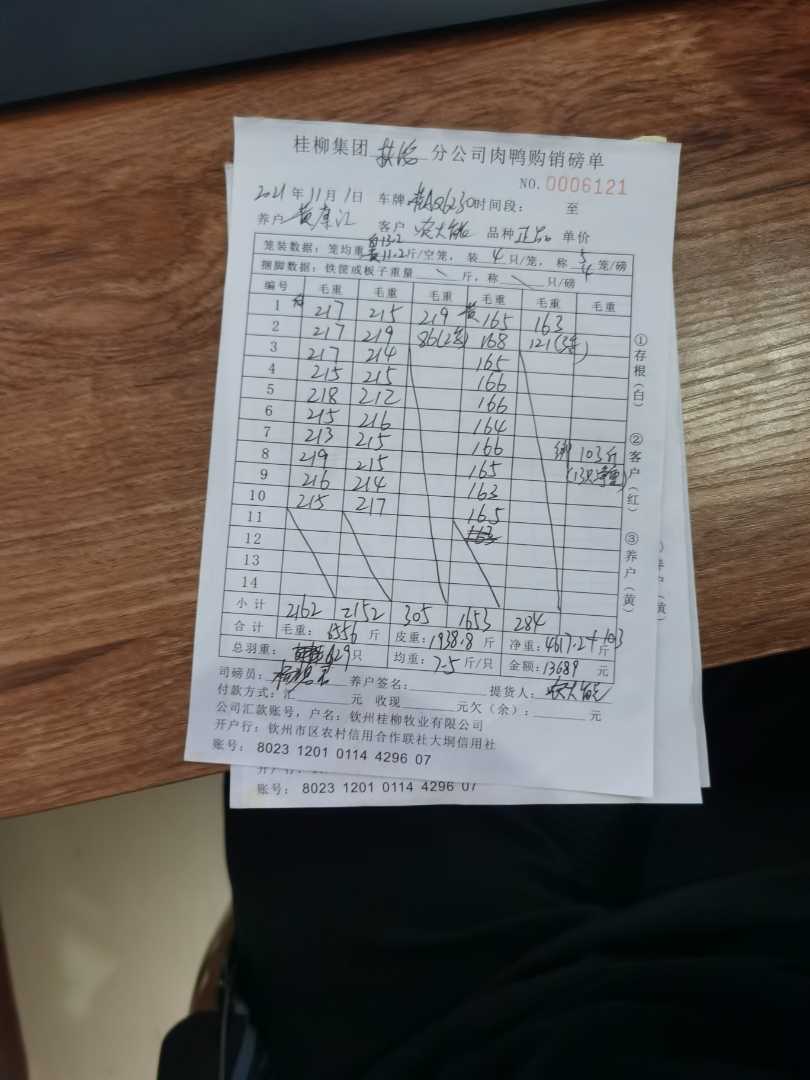 桂柳集团 扶绥 分公司肉鸭购销磅单
NO. 0006121
2021年11月1日 车牌 时间段： 至
养户 客户 农大能 品种 正品 单价
笼装数据：笼均重 白13.2 黄11.2 斤/空笼，装 4 只/笼，称 5 4 笼/磅
捆脚数据：铁筐或板子重量 \ 斤，称 \ 只/磅
编号 毛重 毛重 毛重 毛重 毛重 毛重
1 白 217 215 219 黄 165 163
2 217 219 86(2笼) 168 121(3笼)
3 217 214 165
4 215 215 166
5 218 212 166
6 215 216 164
7 213 215 166 绑 103斤
8 219 215 165
9 216 214 163
10 215 217 165
11 163
12
13
14
小计 2162 2152 305 1653 284
合计 毛重：6556 斤 皮重：1938.8 斤 净重：4617.2+103 斤
总羽重： 629只 均重：7.5 斤/只 金额：13689 元
司磅员： 养户签名： 提货人：农大能
付款方式：汇 元 收现 元欠（余）： 元
公司汇款账号，户名：钦州桂柳牧业有限公司
开户行：钦州市区农村信用合作联社大垌信用社
账号： 8023 1201 0114 4296 07
①存根（白）
②客户（红）
③养户（黄）
开户行：
账号： 8023 1201 0114 4296 07